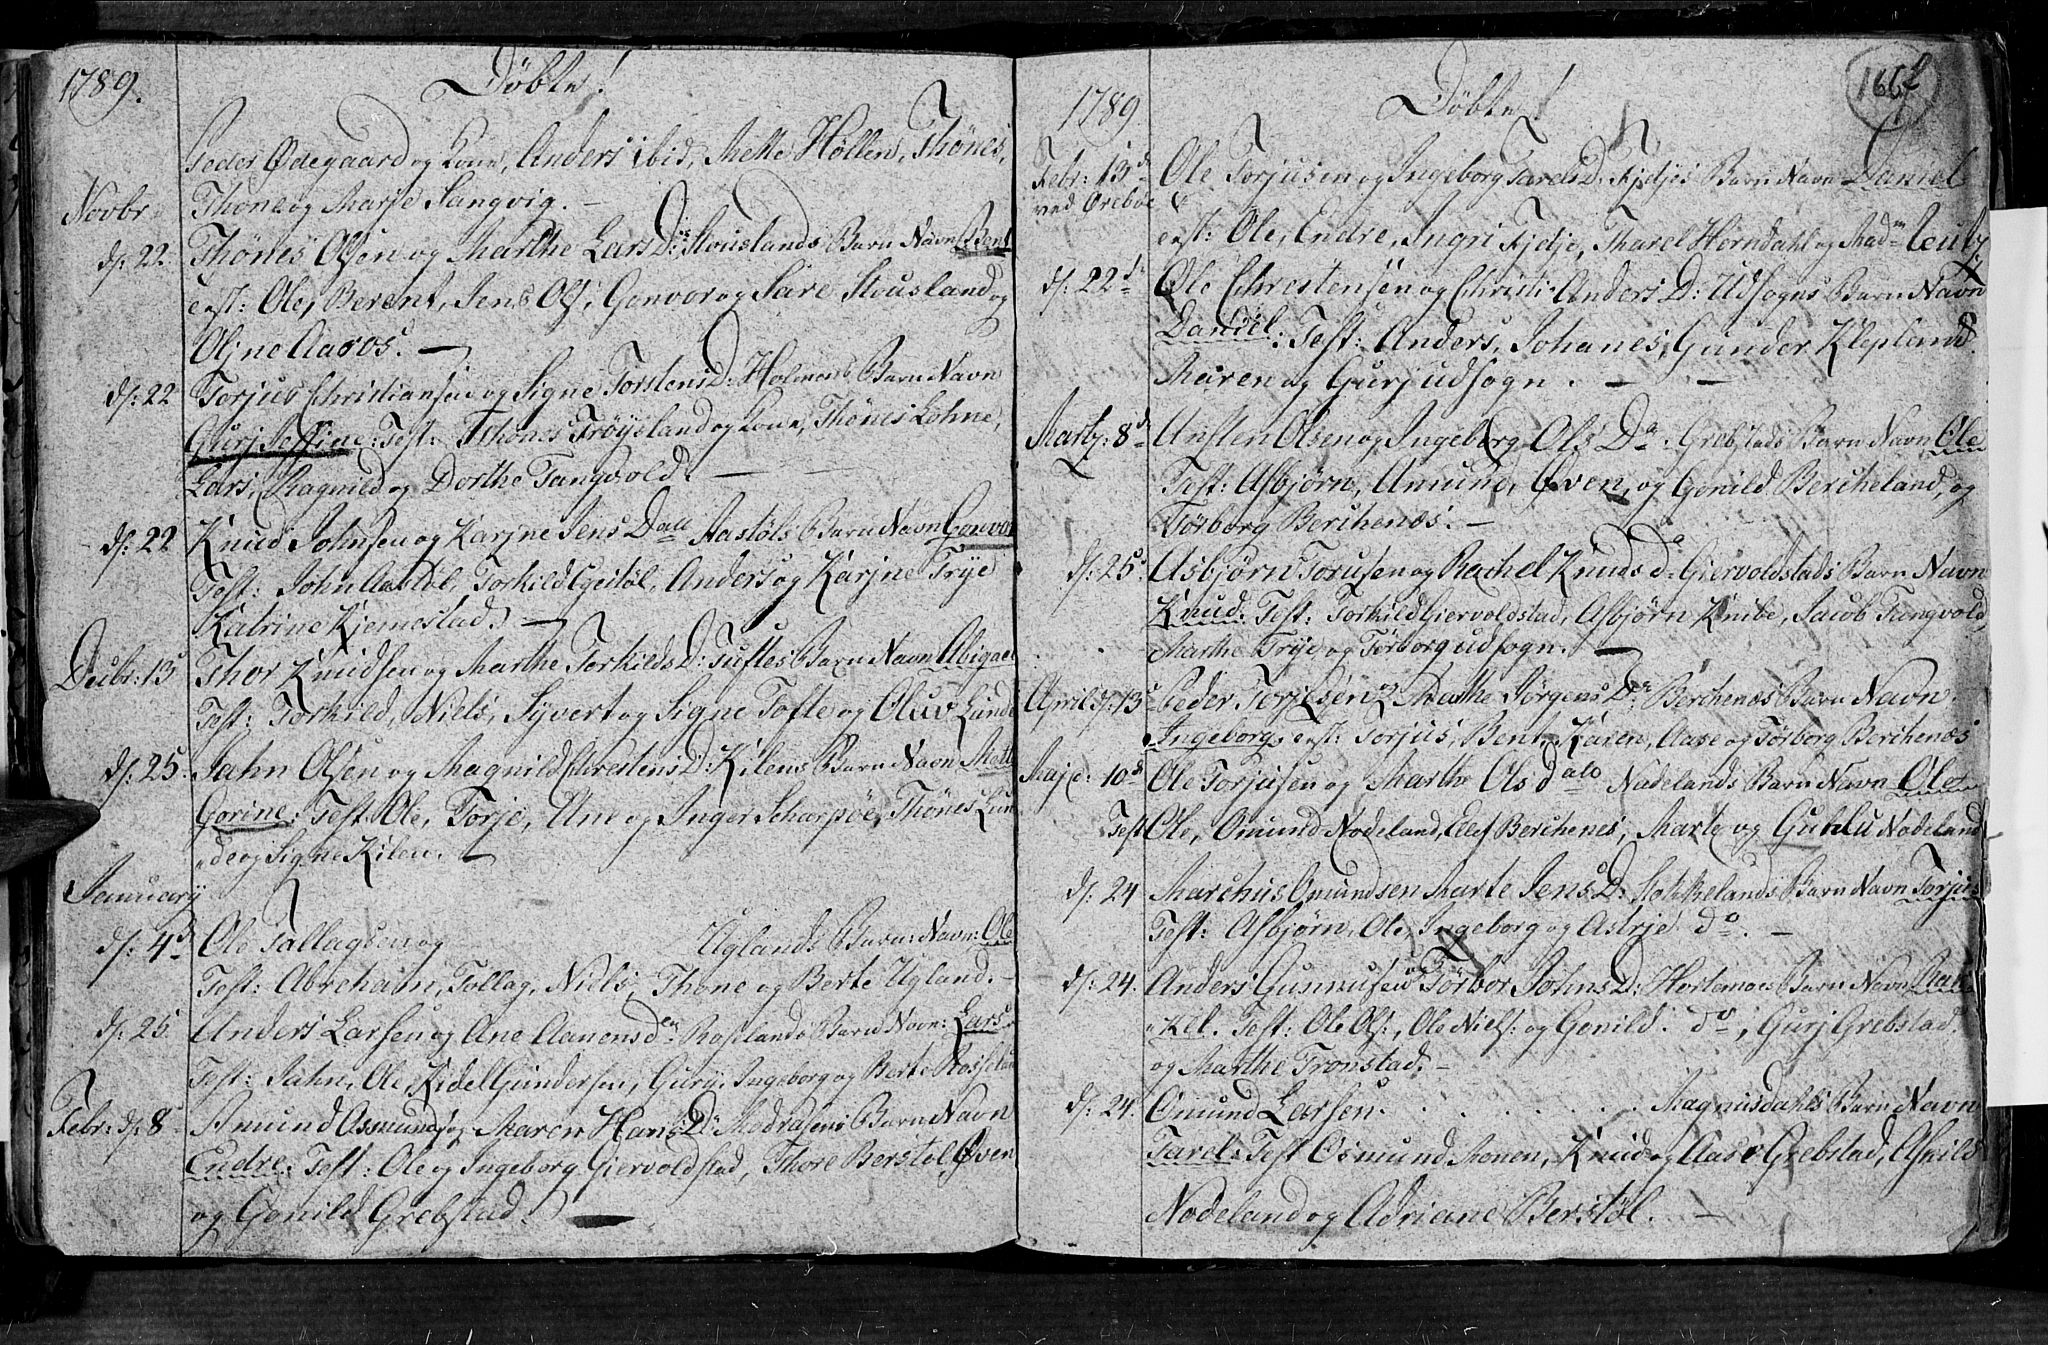 1789.
Döbte!
Peder Ødegaard og Kone, Anders ibid, Mette Höllen, Thönes,
Novbr
Thone og Marje Langvig. —
d: 22. Thönes Olsen og Marthe LarsD: Stouslands Barn Navn Bent
test: Ole, Berent, Jens Ols:, Gonvor og Sare Stousland og
Oljne Aaros. —
d: 22 Torjus Christiansen og Signe TorstensD: Holmens Barn Navn
Gurj Sessine: Test: Thönes Tröysland og Kone, Thönes Lohne,
Lars, Ragnild og Dorthe Tangvold. —
d: 22 Knud Johnsen og Karjne Jens D Aastöls Barn Navn Gonvor
Test: John Aastöl, Torkild Egeitöl, Anders og Karjne Trye
Katrine Kjemestad. —
Decbr: 13 Thor Knudsen og Marthe TorkildsD: Tuftes Barn Navn Abigael
Test: Torkild, Niels, Syvert og Signe Tofte og Oluv Lunde
d: 25. Jahn Olsen og Magnild ChrestensD: Kilens Barn Navn Mette
Gorine: Test: Ole, Torje, Ane og Inger Scharpöe, Thönes Lun
de og Signe Kilen. —
January
d: 4 Ole Tallagsen og Uglands Barn: Navn: Ole
Test: Abreham, Tollag, Niels, Thone og Berte Ugland. —
d: 25 Anders Larsen og Ane Aanensd Roslands Barn Navn: Lars
Test: Jahn, Ole, Kidel Gundersen, Gurj, Ingeborg og Berte Rosseland
Febr: d: 8 Amund Osmunds: og Maren HansD: Modrasens Barn Navn
Endre: Test: Ole og Ingeborg Giervoldstad, Thore Berstöl Öven
og Gonild Grebstad. —
166
1789
Döbte!
Febr: 13 Ole Torjusen og Ingeborg TarelsD: Fjdjes Barn Navn Daniel
ved Örebye
test: Ole, Endre, Ingri Fjdje, Tharel Horndahl og Mad
d: 22 Ole Chrestensen og Christi Anders D: Udsogns Barn Navn
Daniel: Test: Anders, Johanes, Gunder Klepland
Maren og Gurj udsogn. — —
Marty: 8 Ansten Olsen og Ingeborg Ols D Grebstads Barn Navn Ole
Test: Asbjörn, Amund, Öven, og Gonild Bercheland, og
Törborg Berchenes. —
d: 25 Asbjörn Torusen og Rachel Knuds d: Giervoldstads Barn Navn
Knud: Test: Torkild Giervoldstad, Asbjörn Knibe, Jacob Tangvold
Marthe Trye, og Törborg udsogn. —
April d: 13 Peder Torjesen og Marthe Jörgens D: Berchenes Barn Navn
Ingeborg, test: Torjus, Bent, Karen, Aase og Törborg Berchenes
Maje: 10 Ole Torjusen og Marthe Ols d Nodelands Barn Navn Ole
Test Ole, Omund Nodeland, Elef Berchenes, Marte og Gunlu Nodeland
d: 24 Marchus Omundsen Marte Jens D: Stokkelands Barn Navn Torjus
Test: Asbjörn, Ole, Ingeborg og Astrje do. —
d: 24. Anders Gunnusen Törbor JohnsD: Hortemoes Barn Navn
kel. Test: Ole Ols:, Ole Niels: og Gonild. do, Gurj Grebstad
og Marthe Tronstad. —
d: 24. Omund Larsen. . . . . . . Magnusdahls Barn Navn
Tarel: Test Osmund Monen, Knud og Aase Grebstad, Asnild
Nodeland og Adriane Berstöl. —